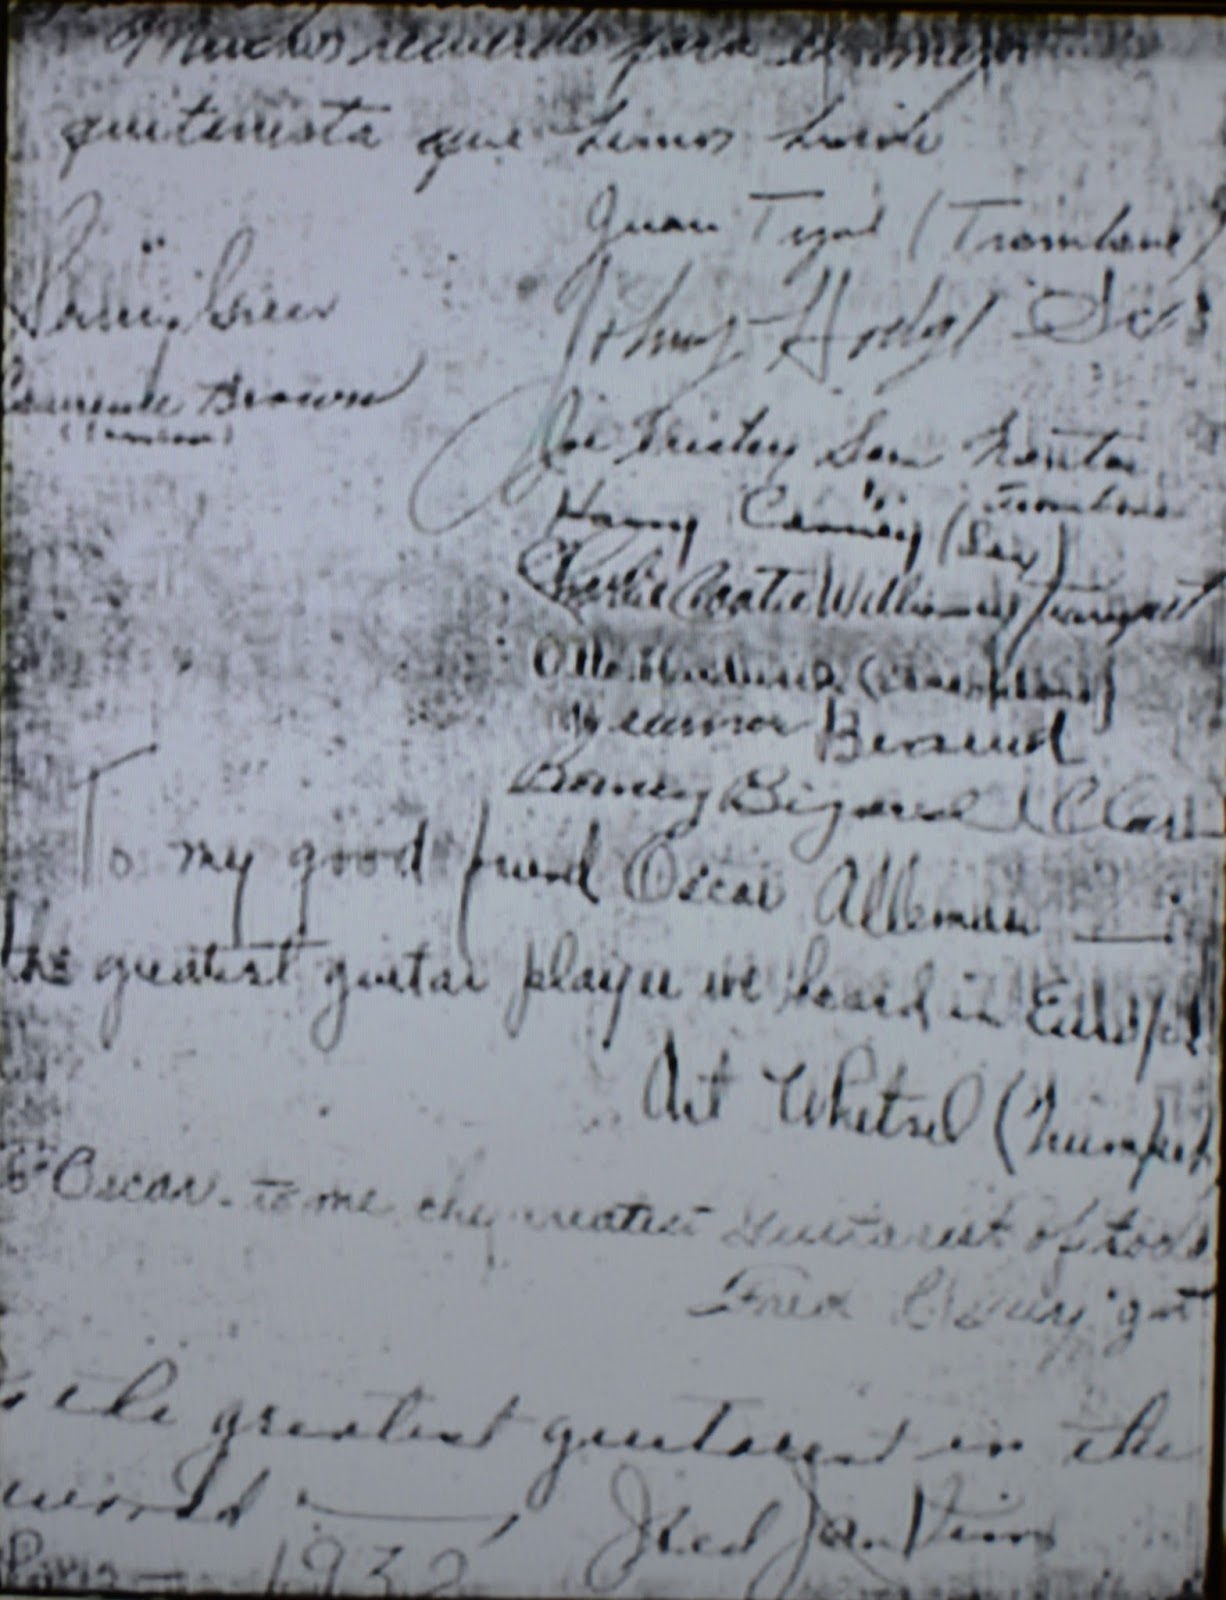 Muchos recuerdo para el mejor
guitarrista que hemos
Juan Tizol (Trombone)
Johny Hodges Sax
Sonny Greer
Lawrence Brown
Joe Nanton
Trombone
Harry Carney (Sax)
Charlie Cootie Williams Trumpet
Otto Hardwick
Barney Bigard (Clari
To my good friend Oscar Alleman —
the greatest guitar player we heard in Europe
Art Whetsel (Trumpet)
To Oscar - to me the greatest guitarist of
Fred Guy
the greatest guitarist in the
world — Fred Jenkins
Paris — 1932